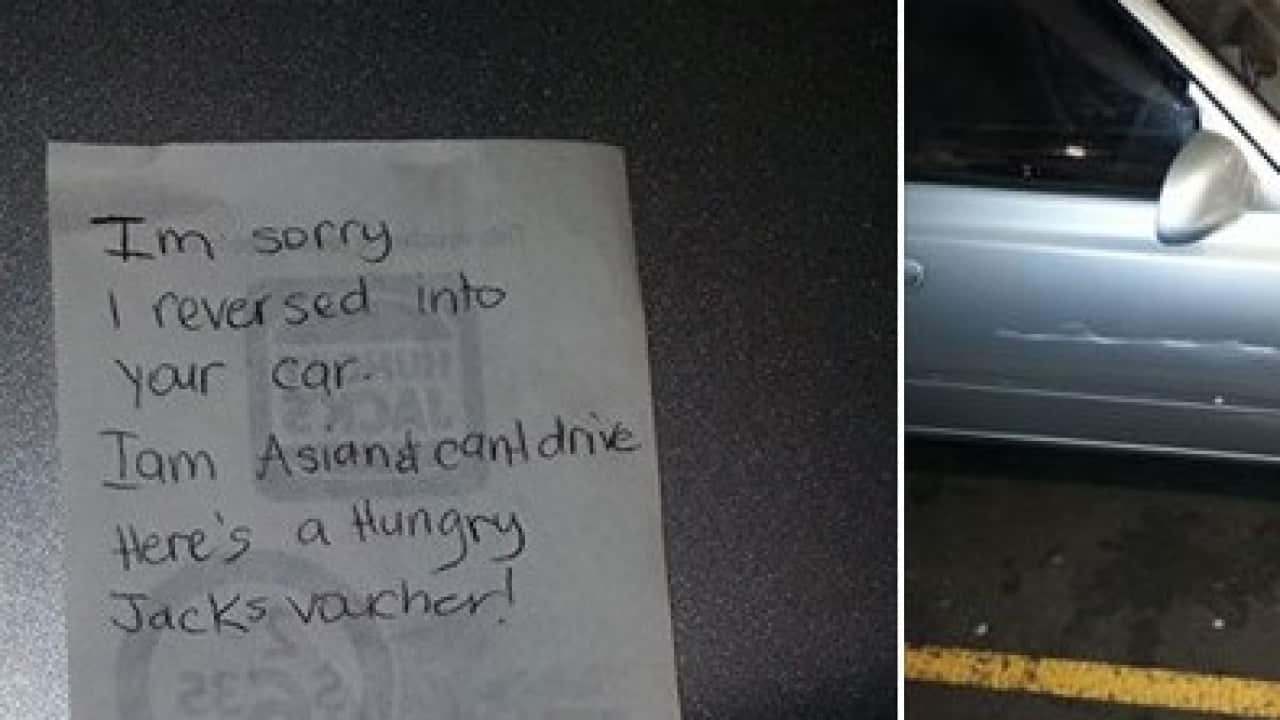 Im sorry
I reversed into
your car.
I am Asian & can't drive
Here's a Hungry
Jacks voucher!
HUNGRY
JACK'S